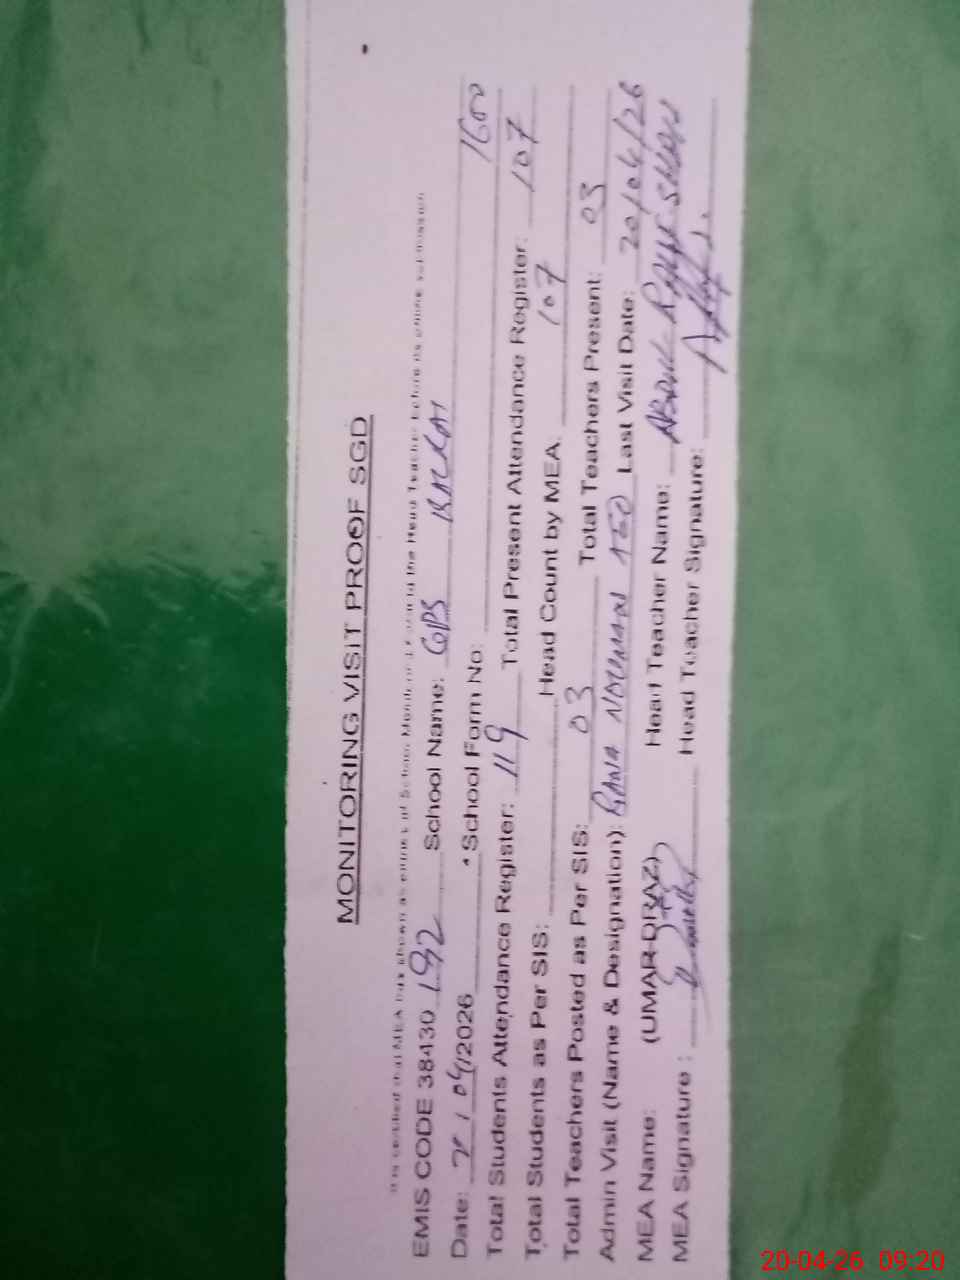 MONITORING VISIT PROOF SGD
It is certified that MEA has shown as entries of School Monitoring Form to the Head Teacher before its online submission
EMIS CODE 38430 192 School Name: GPS
Date: /04/2026 School Form No:
Total Students Attendance Register: 119 Total Present Attendance Register: 107
Total Students as Per SIS: Head Count by MEA. 107
Total Teachers Posted as Per SIS: 03 Total Teachers Present: 03
Admin Visit (Name & Designation): RANA NOUMAN Last Visit Date: 20/04/26
MEA Name: (UMAR DRAZ) Head Teacher Name: ABDUL
MEA Signature : Head Teacher Signature:
20-04-26 09:20